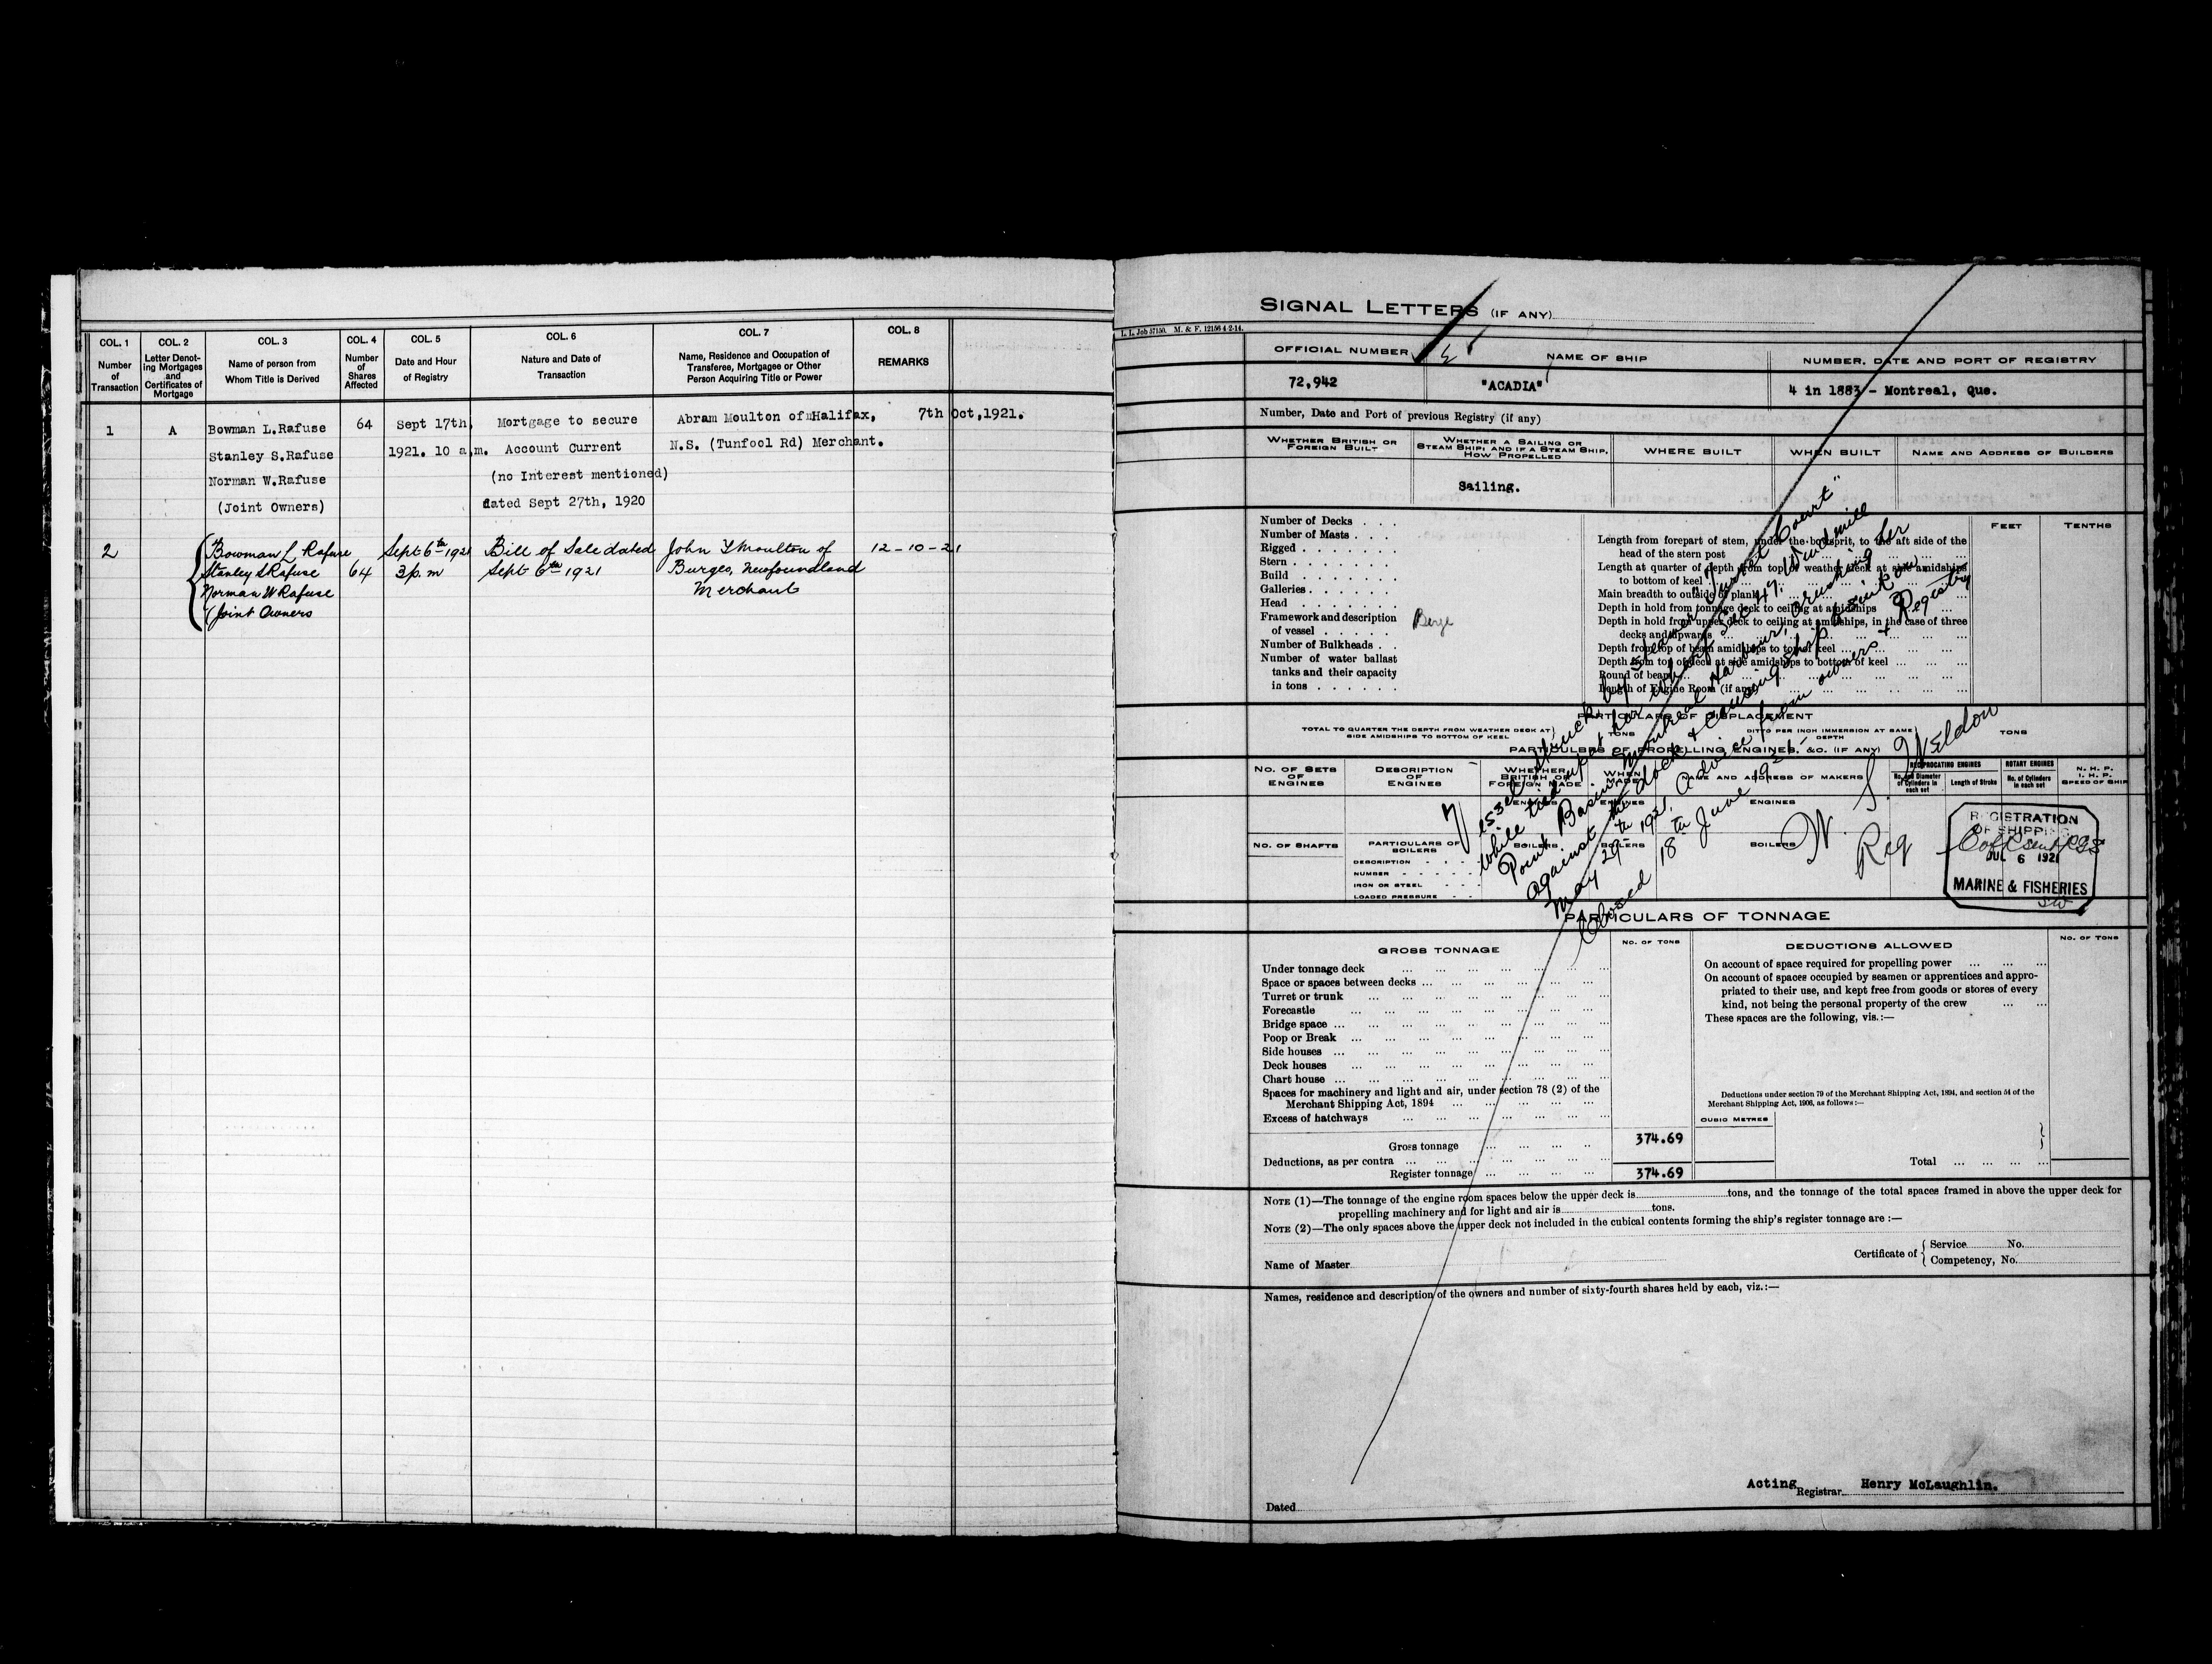 COL. 1
Number
of
Transaction
COL. 2
Letter Denot-
ing Mortgages
and
Certificates of
Mortgage
COL. 3
Name of person from
Whom Title is Derived
COL. 4
Number
of
Shares
Affected
COL. 5
Date and Hour
of Registry
COL. 6
Nature and Date of
Transaction
COL. 7
Name, Residence and Occupation of
Transferee, Mortgagee or Other
Person Acquiring Title or Power
COL. 8
REMARKS
1 A Bowman L.Rafuse 64 Sept 17th, Mortgage to secure Abram Moulton of Halifax, 7th Oct,1921.
Stanley S.Rafuse 1921. 10 a.m. Account Current N.S. (Tunfool Rd) Merchant.
Norman W.Rafuse (no Interest mentioned)
(Joint Owners) dated Sept 27th, 1920
2 Bowman L Rafuse Sept 6th 1921 Bill of Sale dated John T Moulton of 12-10-21
Stanley S Rafuse 64 3 p.m Sept 6th 1921 Burgeo, Newfoundland
Norman W Rafuse Merchant
(Joint Owners
SIGNAL LETTERS (IF ANY)
L. I. Job 57150. M. & F. 12156 4-2-14.
OFFICIAL NUMBER NAME OF SHIP NUMBER, DATE AND PORT OF REGISTRY
72,942 "ACADIA" 4 in 1883 - Montreal, Que.
Number, Date and Port of previous Registry (if any)
WHETHER BRITISH OR
FOREIGN BUILT
WHETHER A SAILING OR
STEAM SHIP, AND IF A STEAM SHIP,
HOW PROPELLED
WHERE BUILT
WHEN BUILT
NAME AND ADDRESS OF BUILDERS
Sailing.
Number of Decks . . .
Number of Masts . . .
Rigged . . . . . . .
Stern . . . . . . . .
Build . . . . . . .
Galleries . . . . . .
Head . . . . . . .
Framework and description
of vessel . . . . . Barge
Number of Bulkheads . .
Number of water ballast
tanks and their capacity
in tons . . . . . .
FEET TENTHS
Length from forepart of stem, under the bowsprit, to the aft side of the
head of the stern post
Length at quarter of depth from top of weather deck at side amidships
to bottom of keel
Main breadth to outside of plank
Depth in hold from tonnage deck to ceiling at amidships
Depth in hold from upper deck to ceiling at amidships, in the case of three
decks and upwards
Depth from top of beam amidships to top of keel
Depth from top of deck at side amidships to bottom of keel
Round of beam
Length of Engine Room (if any)
Vessel struck by steamer "Turret Court"
while tied up at her wharf Sec 47. Windmill
Point Basin Montreal Harbour, crushing her
against the dock & causing ship to sink on
May 29th 1921, Advice from owners
Closed 18th June 1921 & Registry
W. S. Weldon
Reg
PARTICULARS OF DISPLACEMENT
TOTAL TO QUARTER THE DEPTH FROM WEATHER DECK AT
SIDE AMIDSHIPS TO BOTTOM OF KEEL
TONS
DITTO PER INCH IMMERSION AT SAME
DEPTH
TONS
PARTICULARS OF PROPELLING ENGINES, &C. (IF ANY)
NO. OF SETS
OF
ENGINES
DESCRIPTION
OF
ENGINES
WHETHER
BRITISH OR
FOREIGN MADE
WHEN
MADE
NAME AND ADDRESS OF MAKERS
RECIPROCATING ENGINES
No. and Diameter
of Cylinders in
each set
Length of Stroke
ROTARY ENGINES
No. of Cylinders
in each set
N. H. P.
I. H. P.
SPEED OF SHIP
ENGINES ENGINES ENGINES
NO. OF SHAFTS
PARTICULARS OF
BOILERS
BOILERS BOILERS BOILERS
DESCRIPTION
NUMBER
IRON OR STEEL
LOADED PRESSURE
REGISTRATION
OF SHIPPING
JUL 6 1921
MARINE & FISHERIES
PARTICULARS OF TONNAGE
GROSS TONNAGE
NO. OF TONS
DEDUCTIONS ALLOWED
NO. OF TONS
Under tonnage deck
Space or spaces between decks
Turret or trunk
Forecastle
Bridge space
Poop or Break
Side houses
Deck houses
Chart house
Spaces for machinery and light and air, under section 78 (2) of the
Merchant Shipping Act, 1894
Excess of hatchways
Gross tonnage 374.69
Deductions, as per contra
Register tonnage 374.69
On account of space required for propelling power
On account of spaces occupied by seamen or apprentices and appro-
priated to their use, and kept free from goods or stores of every
kind, not being the personal property of the crew
These spaces are the following, vis.:—
Deductions under section 79 of the Merchant Shipping Act, 1894, and section 54 of the
Merchant Shipping Act, 1906, as follows:—
CUBIC METRES
Total
NOTE (1)—The tonnage of the engine room spaces below the upper deck is tons, and the tonnage of the total spaces framed in above the upper deck for
propelling machinery and for light and air is tons.
NOTE (2)—The only spaces above the upper deck not included in the cubical contents forming the ship's register tonnage are :—
Name of Master
Certificate of { Service No.
Competency, No.
Names, residence and description of the owners and number of sixty-fourth shares held by each, viz.:—
Dated
Acting Registrar. Henry McLaughlin.